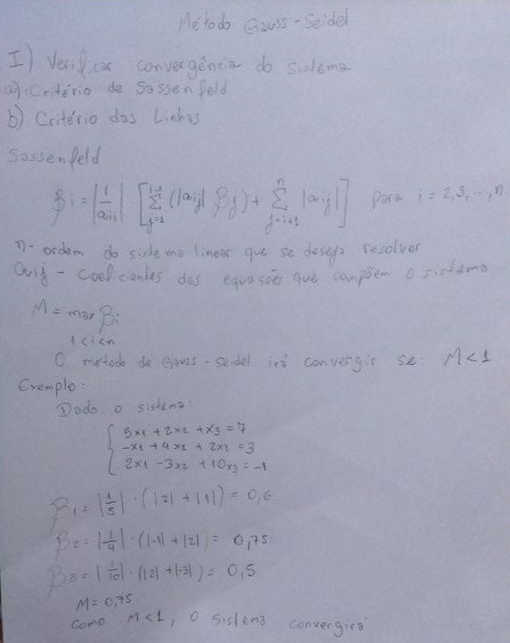 Método Gauss-Seidel
I) Verificar convergência do sistema
a) Critério de Sassenfeld
b) Critério das Linhas
Sassenfeld
βi = |1/aii| [∑_{j=1}^{i-1} (|aij| βj) + ∑_{j=i+1}^{n} |aij|] para i = 2,3,...,n
n- ordem do sistema linear que se deseja resolver
aij - Coeficientes das equações que compõem o sistema
M = max βi
1<i<n
O método de Gauss-Seidel irá convergir se: M<1
Exemplo:
Dado o sistema:
5x1 + 2x2 + x3 = 7
-x1 + 4x2 + 2x3 = 3
2x1 - 3x2 + 10x3 = -1
β1 = |1/5| · (|2| + |1|) = 0,6
β2 = |1/4| · (|-1| + |2|) = 0,75
β3 = |1/10| · (|2| + |-3|) = 0,5
M = 0,75
Como M<1, o sistema convergirá